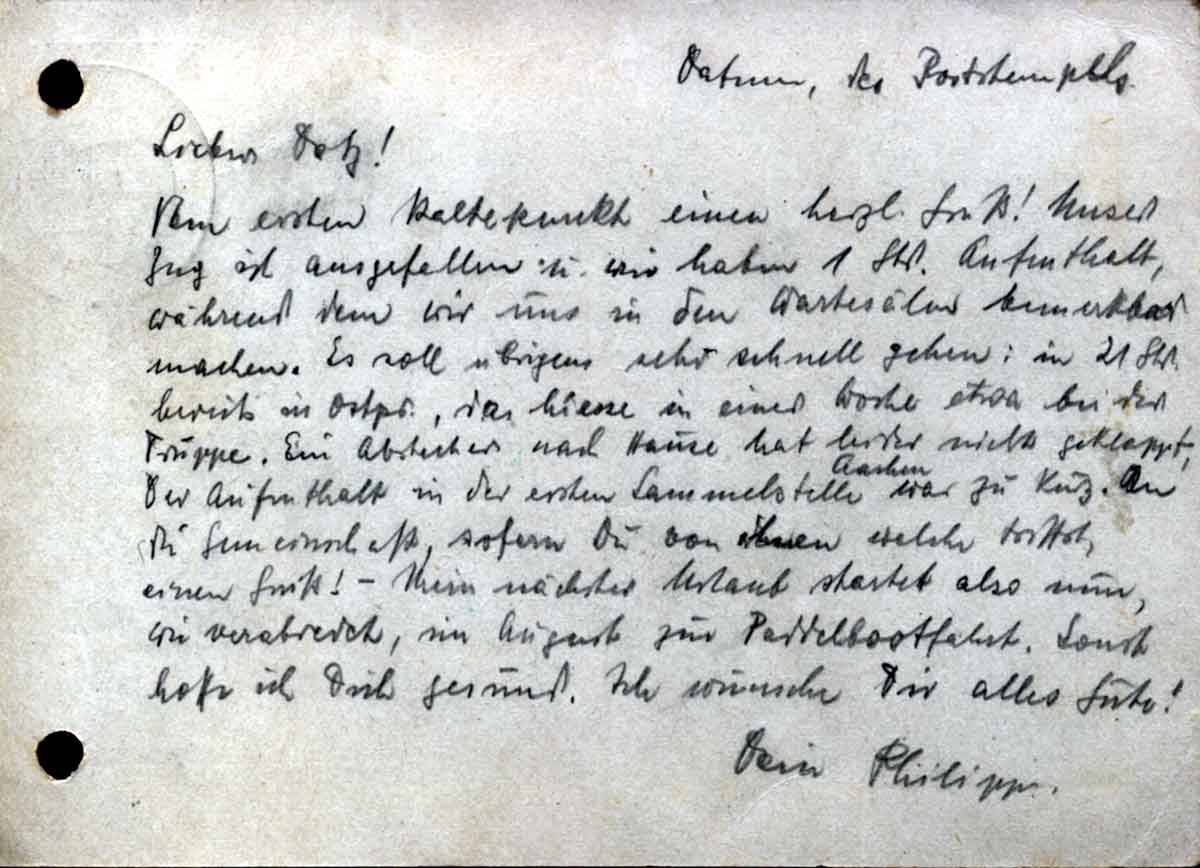 Datum, des Poststempels.
Lieber Datz!
Vom ersten Haltepunkt einen herzl. Gruß! Unser
Zug ist ausgefallen u. wir haben 1 Std. Aufenthalt,
während dem wir uns in den Wartesälen bemerkbar
machen. Es soll übrigens sehr schnell gehen: in 21 Std.
bereits in Ostpr., das hiesse in einer Woche etwa bei der
Truppe. Ein Abstecher nach Hause hat leider nicht geklappt,
Aachen
Der Aufenthalt in der ersten Sammelstelle war zu kurz. An
die Gemeinschaft, sofern Du von ihnen welche triffst,
einen Gruß! – Mein nächster Urlaub startet also nun,
wie verabredet, im August zur Paddelbootfahrt. Sonst
hoffe ich Dich gesund. Ich wünsche Dir alles Gute!
Dein Philipp.